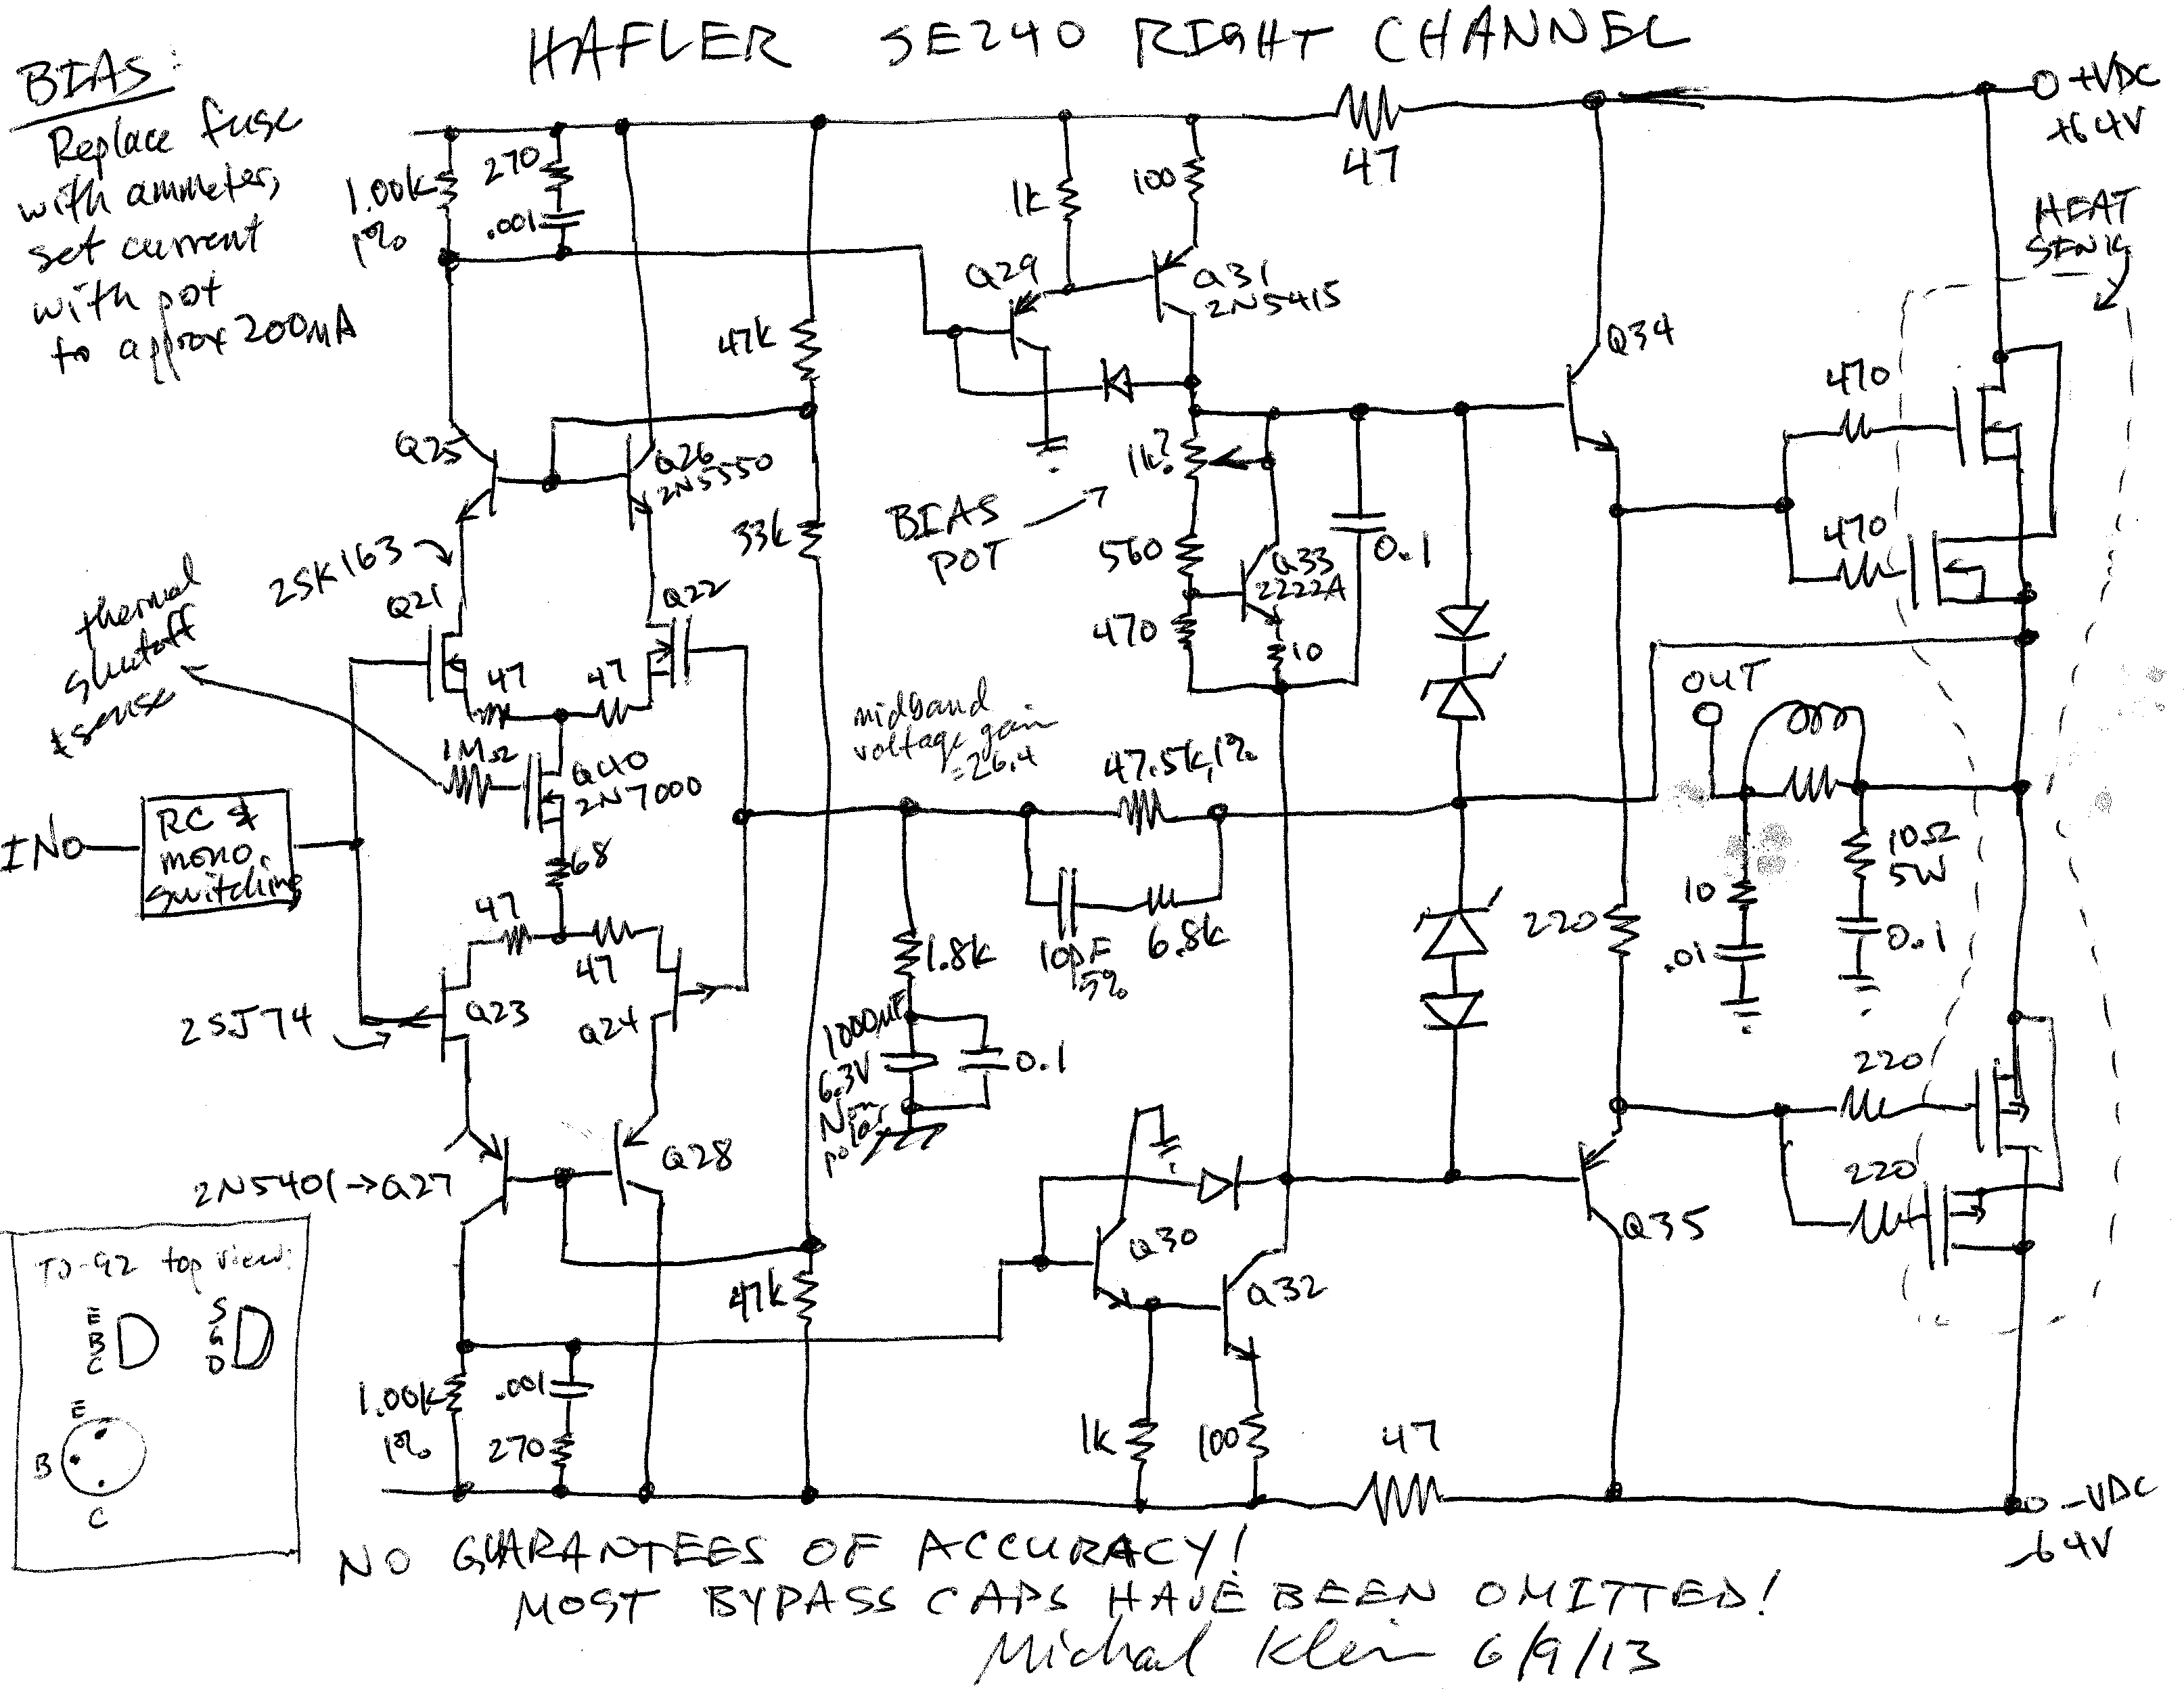 HAFLER SE240 RIGHT CHANNEL
BIAS:
Replace fuse
with ammeter,
set current
with pot
to approx 200mA
+VDC
+64V
HEAT
SINK
47
1.00k
1%
270
.001
1k
100
Q29
Q31
2N5415
47k
Q34
470
470
Q25
Q26
2N5550
1k?
BIAS
POT
33k
560
Q33
2222A
0.1
470
10
2SK163
Q21
Q22
thermal
shutoff
sense
47
47
1MΩ
Q40
2N7000
68
midband
voltage gain
=26.4
47.5k, 1%
OUT
INO
RC &
mono
switching
47
47
1.8k
10pF
5%
6.8k
220
10
.01
10Ω
5W
0.1
2SJ74
Q23
Q24
1000µF
6.3V
Non
polar
0.1
220
220
2N5401→Q27
Q28
Q30
Q32
Q35
TO-92 top view:
E
B
C
S
G
D
E
B
C
47k
1.00k
1%
.001
270
1k
100
47
-VDC
-64V
NO GUARANTEES OF ACCURACY!
MOST BYPASS CAPS HAVE BEEN OMITTED!
Michael Klein 6/9/13